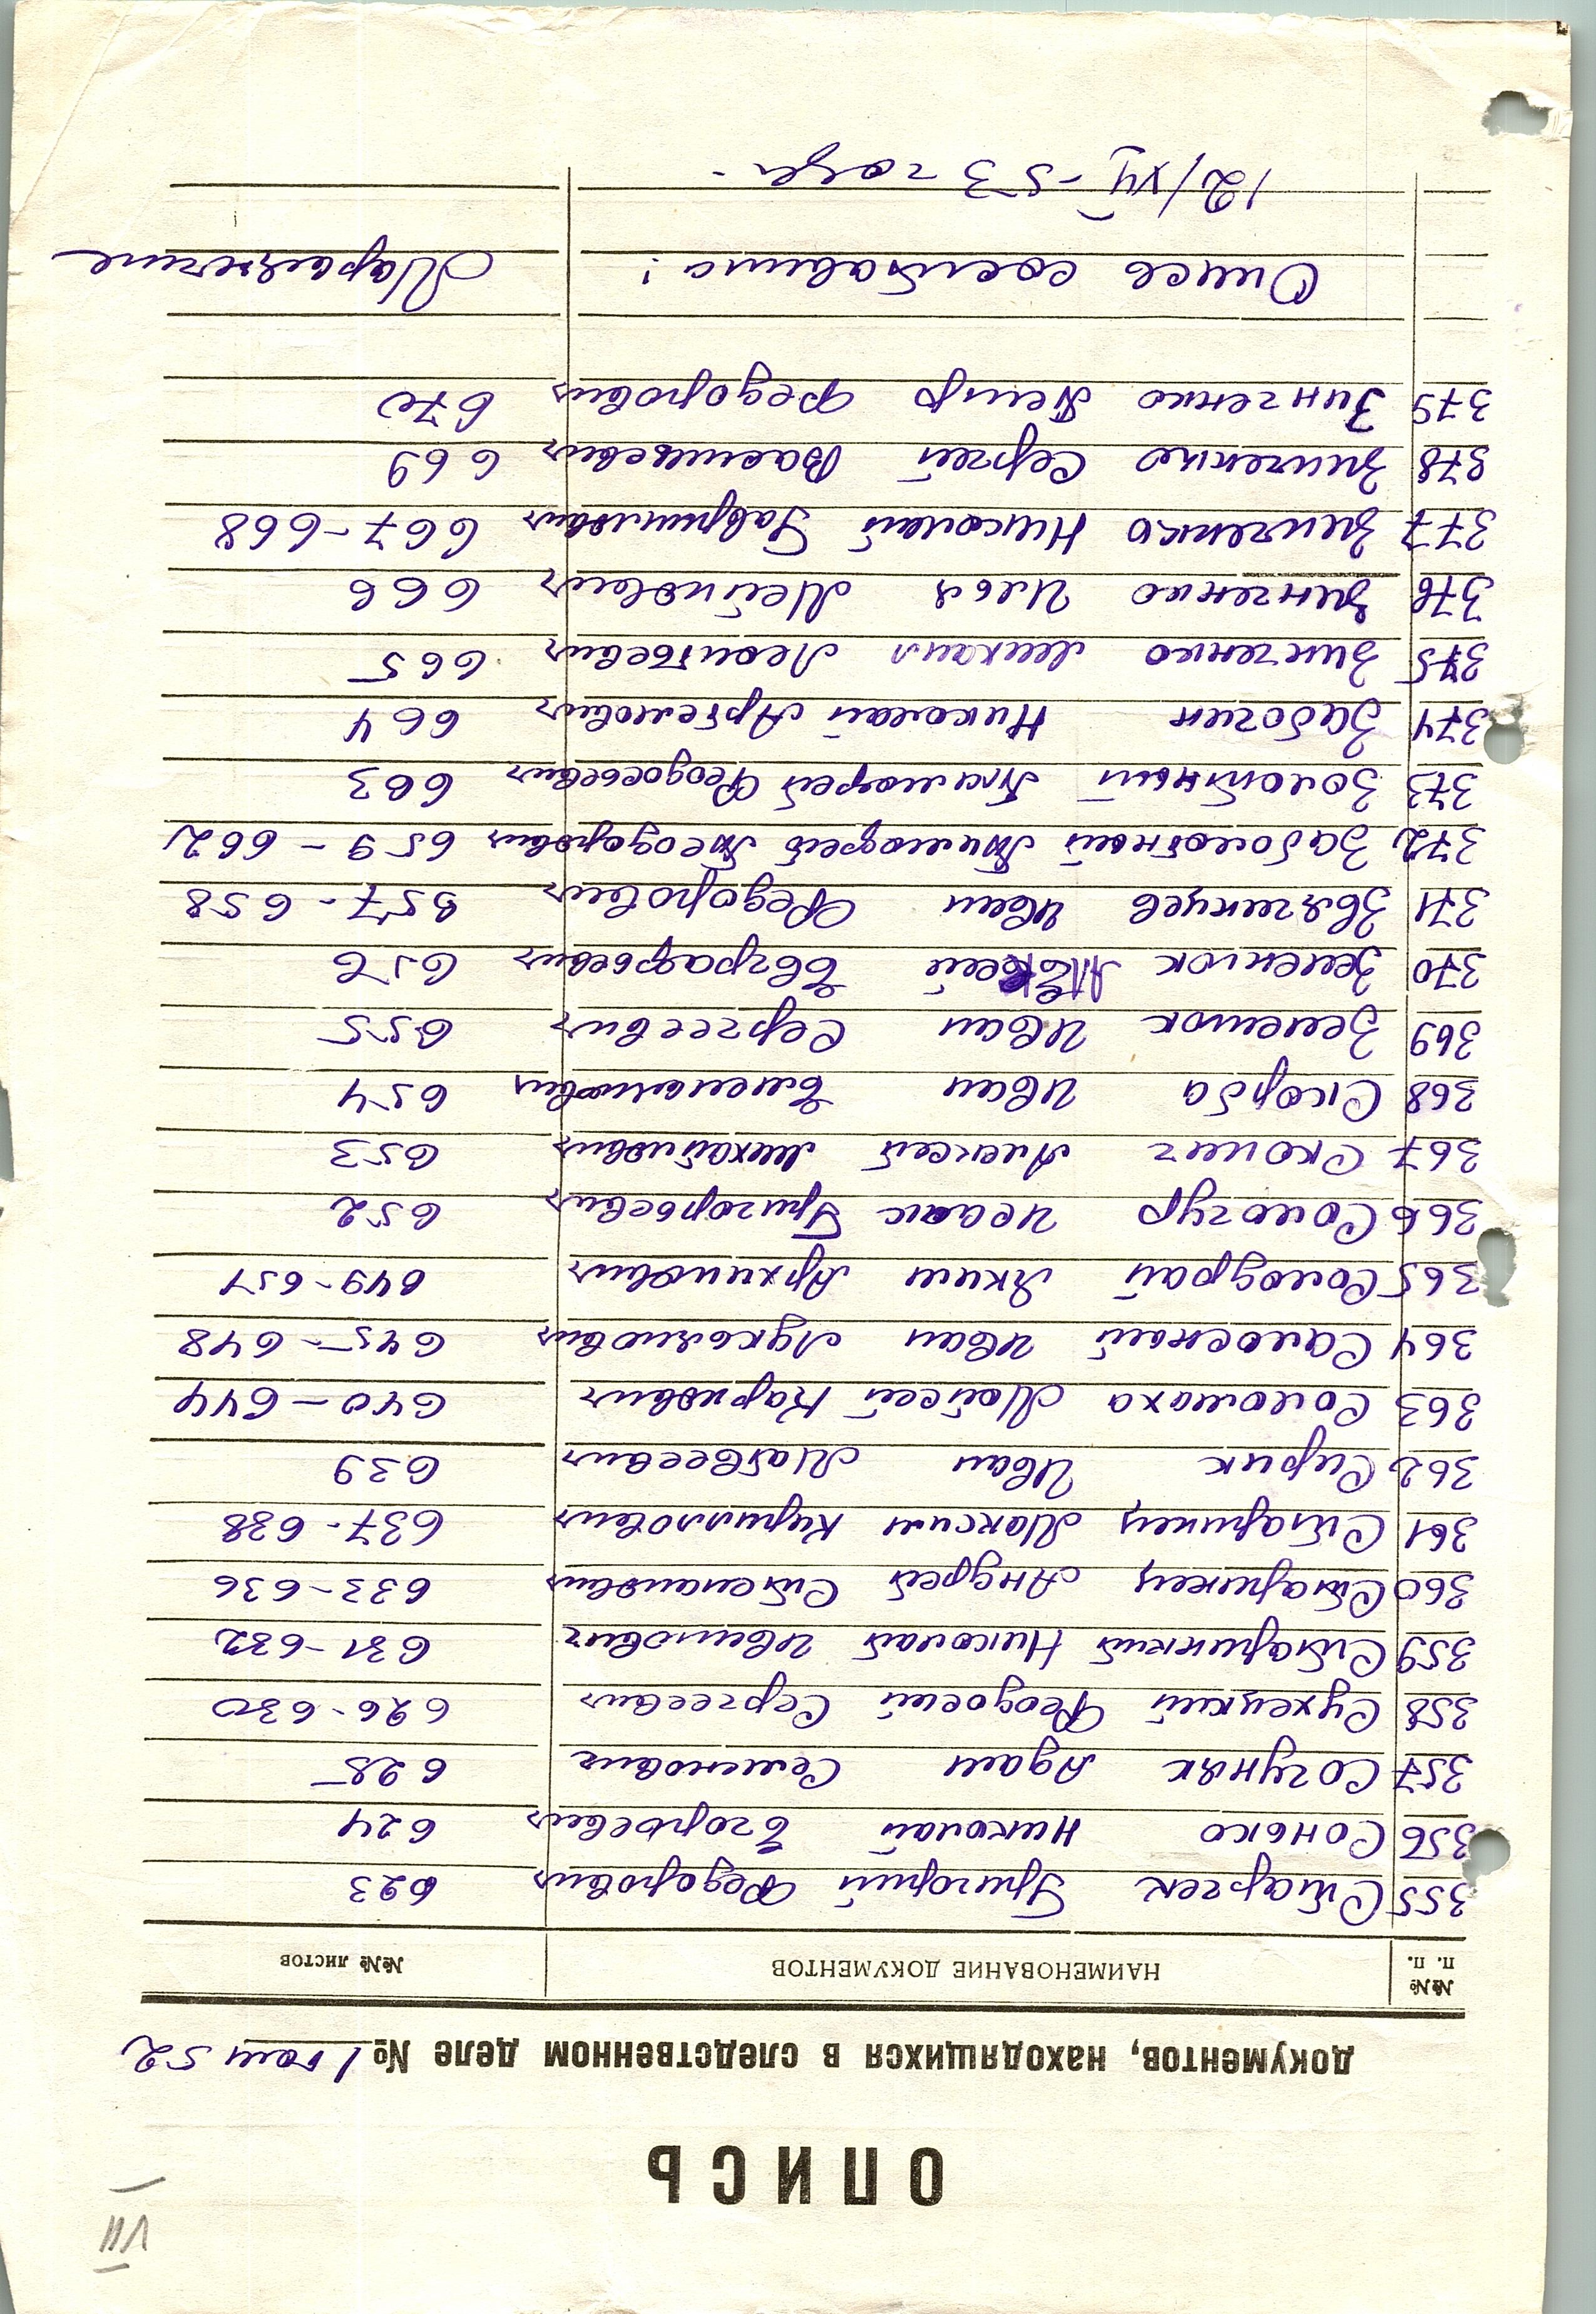 VII
ОПИСЬ
документов, находящихся в следственном деле № 1 том 52
№№ п. п. НАИМЕНОВАНИЕ ДОКУМЕНТОВ №№ листов
355 Старчек Григорий Федорович 623
356 Сонько Николай Егорьевич 624
357 Согуняк Адам Семенович 625
358 Сухецкий Феодосий Сергеевич 626-630
359 Старинкий Николай Иванович 631-632
360 Старинец Андрей Степанович 633-636
361 Старинец Максим Кириллович 637-638
362 Сирик Иван Матвеевич 639
363 Соломаха Мойсей Карпович 640-644
364 Самосный Иван Лукьянович 645-648
365 Солодрай Яким Архипович 649-651
366 Сологур Исаак Григорьевич 652
367 Сколиг Алексей Михайлович 653
368 Скорба Иван Емельянович 654
369 Зеленюк Иван Сергеевич 655
370 Зеленюк Алексей Евграфьевич 656
371 Звягинцев Иван Федорович 657-658
372 Заболотный Тимофей Теодорович 659-662
373 Золотный Тимофей Феодосьевич 663
374 Заболин Николай Артемович 664
375 Зинченко Михаил Леонтьевич 665
376 Зинченко Илья Мейнович 666
377 Зинченко Николай Гаврилович 667-668
378 Зинченко Сергей Васильевич 669
379 Зинченко Петр Федорович 670
Опись составила:
12/XII-53 года.